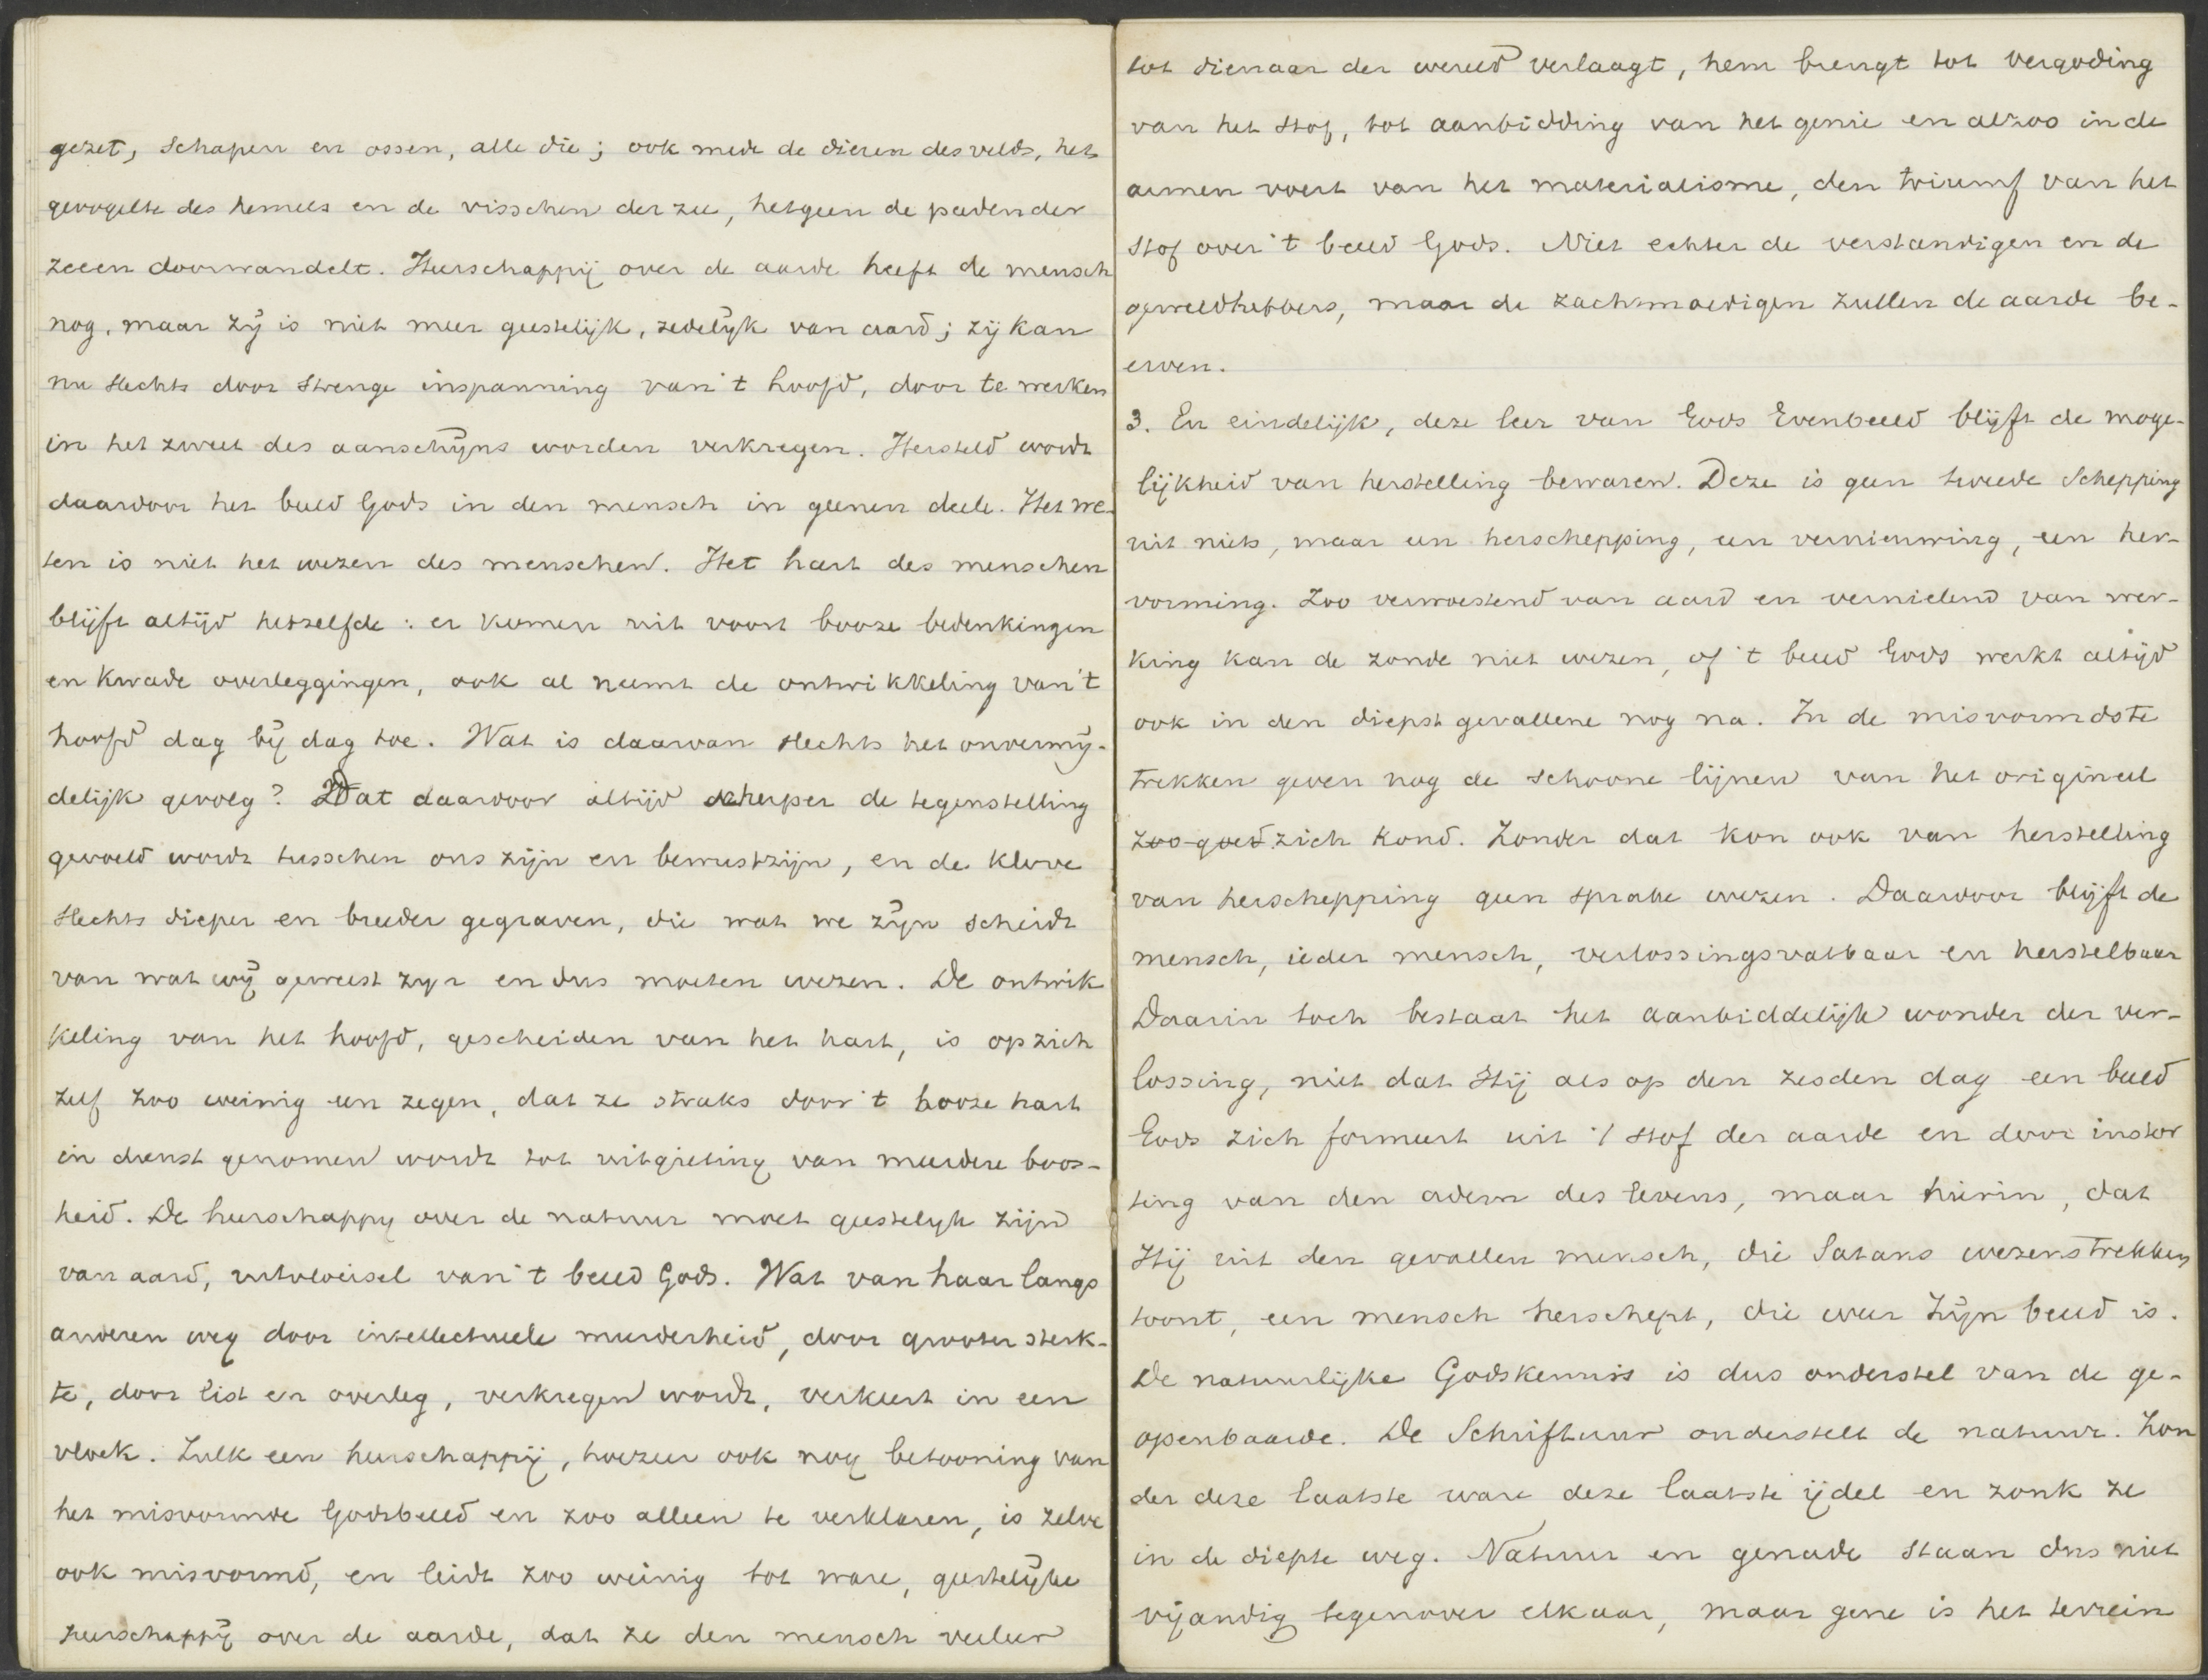 gezet, schapen en ossen, alle die; ook mede de dieren des velds, het
gevogelte des hemels en de visschen der zee, hetgeen de paden der
zeeen doorwandelt. Heerschappij over de aarde heeft de mensch
nog, maar zij is niet meer geestelijk, zedelijk van aard; zij kan
nu slechts door strenge inspanning van 't hoofd, door te werken
in het zweet des aanschijns worden verkregen. Hersteld wordt
daardoor het beeld Gods in den mensch in geenen deele. Het we-
ten is niet het wezen des menschen. Het hart des menschen
blijft altijd hetzelfde: er komen uit voort booze bedenkingen
en kwade overleggingen, ook al neemt de ontwikkeling van 't
hoofd dag bij dag toe. Wat is daarvan slechts het onvermij-
delijk gevolg? Dat daardoor altijd scherper de tegenstelling
gevoeld wordt tusschen ons zijn en bewustzijn, en de klove
slechts dieper en breeder gegraven, die wat we zijn scheidt
van wat wij geweest zijn en dus moeten wezen. De ontwik
keling van het hoofd, gescheiden van het hart, is op zich
zelf zoo weinig een zegen, dat ze straks door 't booze hart
in dienst genomen wordt tot uitgieting van meerdere boos-
heid. De heerschappy over de natuur moet geestelyk zijn
van aard, uitvloeisel van 't beeld Gods. Wat van haar langs
anderen weg door intellectueele meerderheid, door grooter sterk-
te, door list en overleg, verkregen wordt, verkeert in een
vloek. Zulk een heerschappij, hoezeer ook nog betooning van
het misvormde Godsbeeld en zoo alleen te verklaren, is zelve
ook misvormd, en leidt zoo weinig tot ware, geestelijke
heerschappij over de aarde, dat ze den mensch veeleer
tot dienaar der wereld verlaagt, hem brengt tot vergoding
van het stof, tot aanbidding van het genie en alzoo in de
armen voert van het materialisme, den triumf van het
stof over 't beeld Gods. Niet echter de verstandigen en de
geweldhebbers, maar de zachtmoedigen zullen de aarde be-
erven.
3. En eindelijk, deze leer van Gods Evenbeeld blijft de moge-
lijkheid van herstelling bewaren. Deze is geen tweede Schepping
uit niets, maar een herschepping, een vernieuwing, een her-
vorming. Zoo verwoestend van aard en vernielend van wer-
king kan de zonde niet wezen, of 't beeld Gods werkt altijd
ook in den diepst gevallene nog na. In de misvormdste
trekken geven nog de schoone lijnen van het origineel
zoo goed zich kond. Zonder dat kon ook van herstelling
van herschepping geen sprake wezen. Daardoor blijft de
mensch, ieder mensch, verlossingsvatbaar en herstelbaar
Daarin toch bestaat het aanbiddelijk wonder der ver-
lossing, niet dat Hij als op den zesden dag een beeld
Gods zich formeert uit 't stof der aarde en door instor
ting van den adem des levens, maar hierin, dat
Hij uit den gevallen mensch, die Satans wezenstrekken
toont, een mensch herschept, die weer Zijn beeld is.
De natuurlijke Godskennis is dus onderstel van de ge-
openbaarde. De Schriftuur onderstelt de natuur. Zon
der deze laatste ware deze laatste ijdel en zonk ze
in de diepte weg. Natuur en genade staan dus niet
vijandig tegenover elkaar, maar gene is het terrein